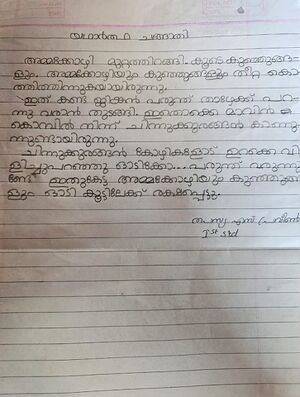 യഥാർത്ഥ ചങ്ങാതി
അമ്മക്കോഴി മുറ്റത്തിറങ്ങി. കൂടെ കുഞ്ഞുങ്ങ-
ളും. അമ്മക്കോഴിയും കുഞ്ഞുങ്ങളും തീറ്റ കൊ
ത്തിത്തിന്നുകയായിരുന്നു.
ഇത് കണ്ട പരുന്ത് താഴേക്ക് പറ-
ന്നു വരാൻ തുടങ്ങി. ഇതൊക്കെ മാവിൻ
കൊമ്പിൽ നിന്ന് ചിന്നുക്കുരങ്ങൻ കാണു
ന്നുണ്ടായിരുന്നു.
ചിന്നുക്കുരങ്ങൻ കോഴികളോട് ഉറക്കെ വി
ളിച്ചുപറഞ്ഞു ഓടിക്കോ... പരുന്ത് വരുന്നു
ണ്ടേ ഇതുകേട്ട അമ്മക്കോഴിയും കുഞ്ഞുങ്ങ
ളും ഓടി കൂട്ടിലേക്ക് രക്ഷപ്പെട്ടു.
തപസ്യ എസ് പ്രവീൺ
Ist std